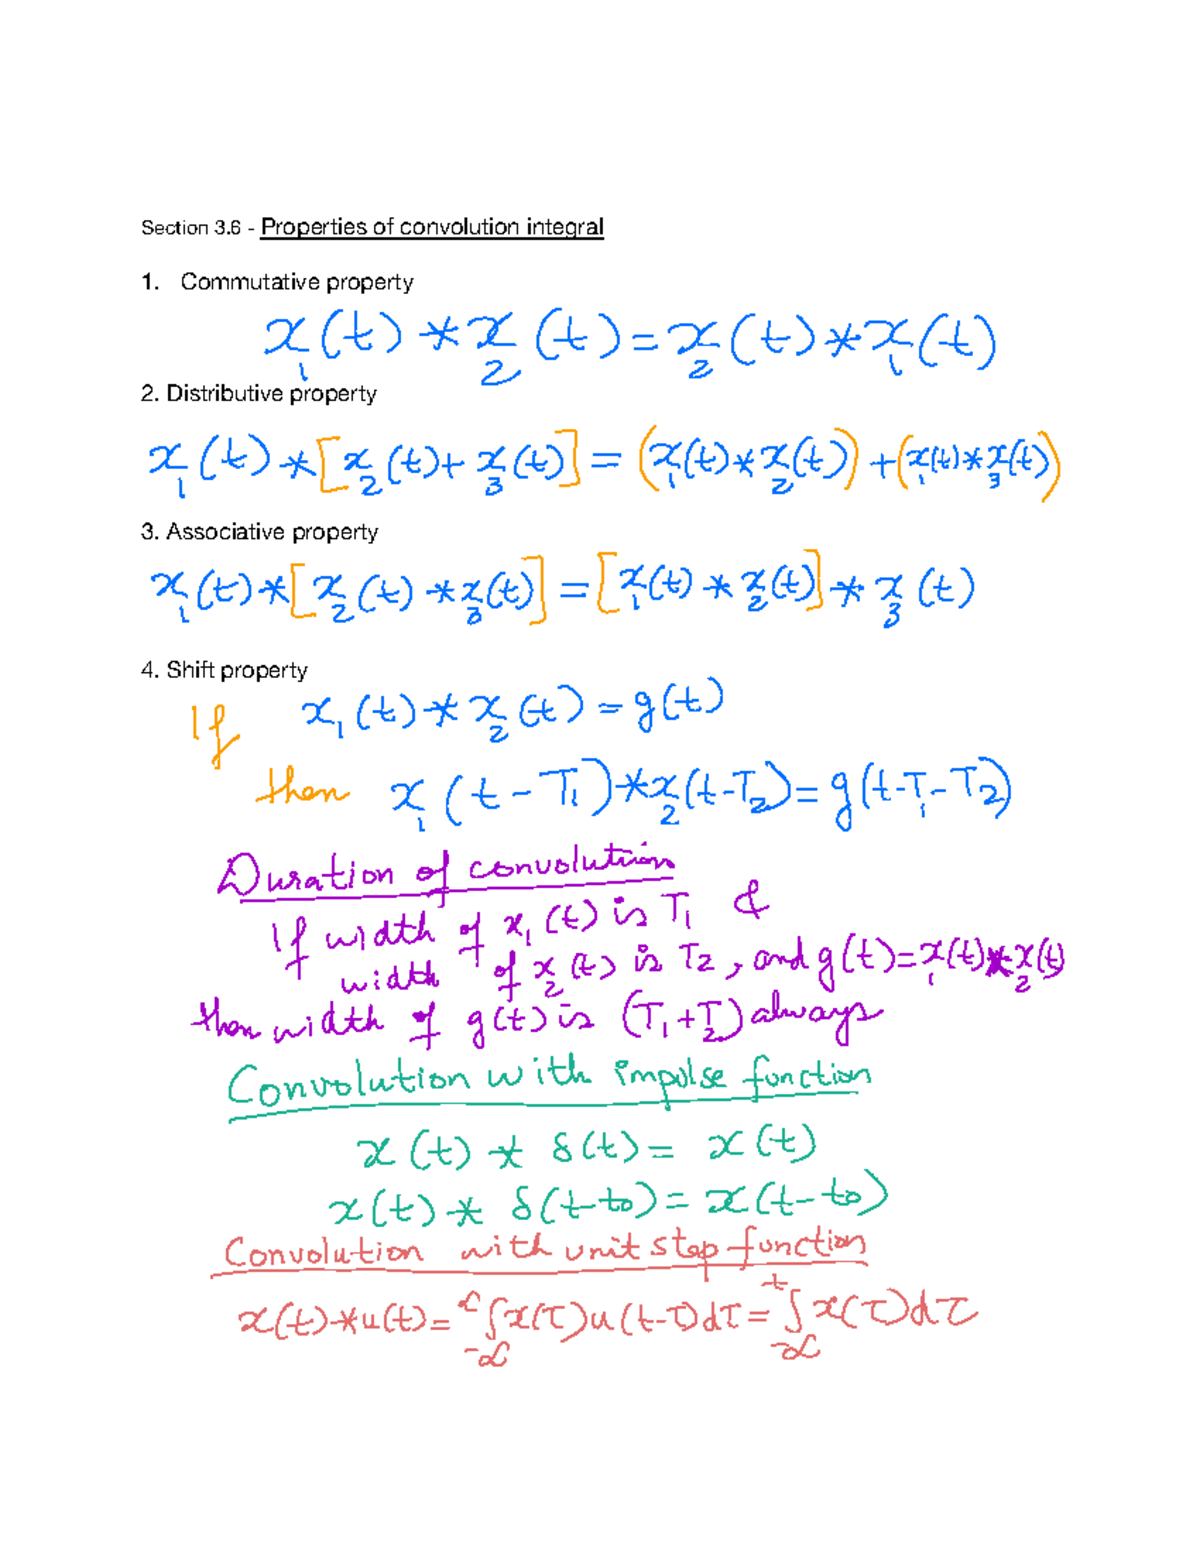 Section 3.6 - Properties of convolution integral
1. Commutative property
x₁(t) * x₂(t) = x₂(t) * x₁(t)
2. Distributive property
x₁(t) * [x₂(t) + x₃(t)] = (x₁(t) * x₂(t)) + (x₁(t) * x₃(t))
3. Associative property
x₁(t) * [x₂(t) * x₃(t)] = [x₁(t) * x₂(t)] * x₃(t)
4. Shift property
If x₁(t) * x₂(t) = g(t)
then x₁(t - T₁) * x₂(t - T₂) = g(t - T₁ - T₂)
Duration of convolution
If width of x₁(t) is T₁ &
width of x₂(t) is T₂, and g(t) = x₁(t) * x₂(t)
then width of g(t) is (T₁ + T₂) always
Convolution with impulse function
x(t) * δ(t) = x(t)
x(t) * δ(t - to) = x(t - to)
Convolution with unit step function
x(t) * u(t) = ∫_{-∞}^{∞} x(τ) u(t - τ) dτ = ∫_{-∞}^{t} x(τ) dτ